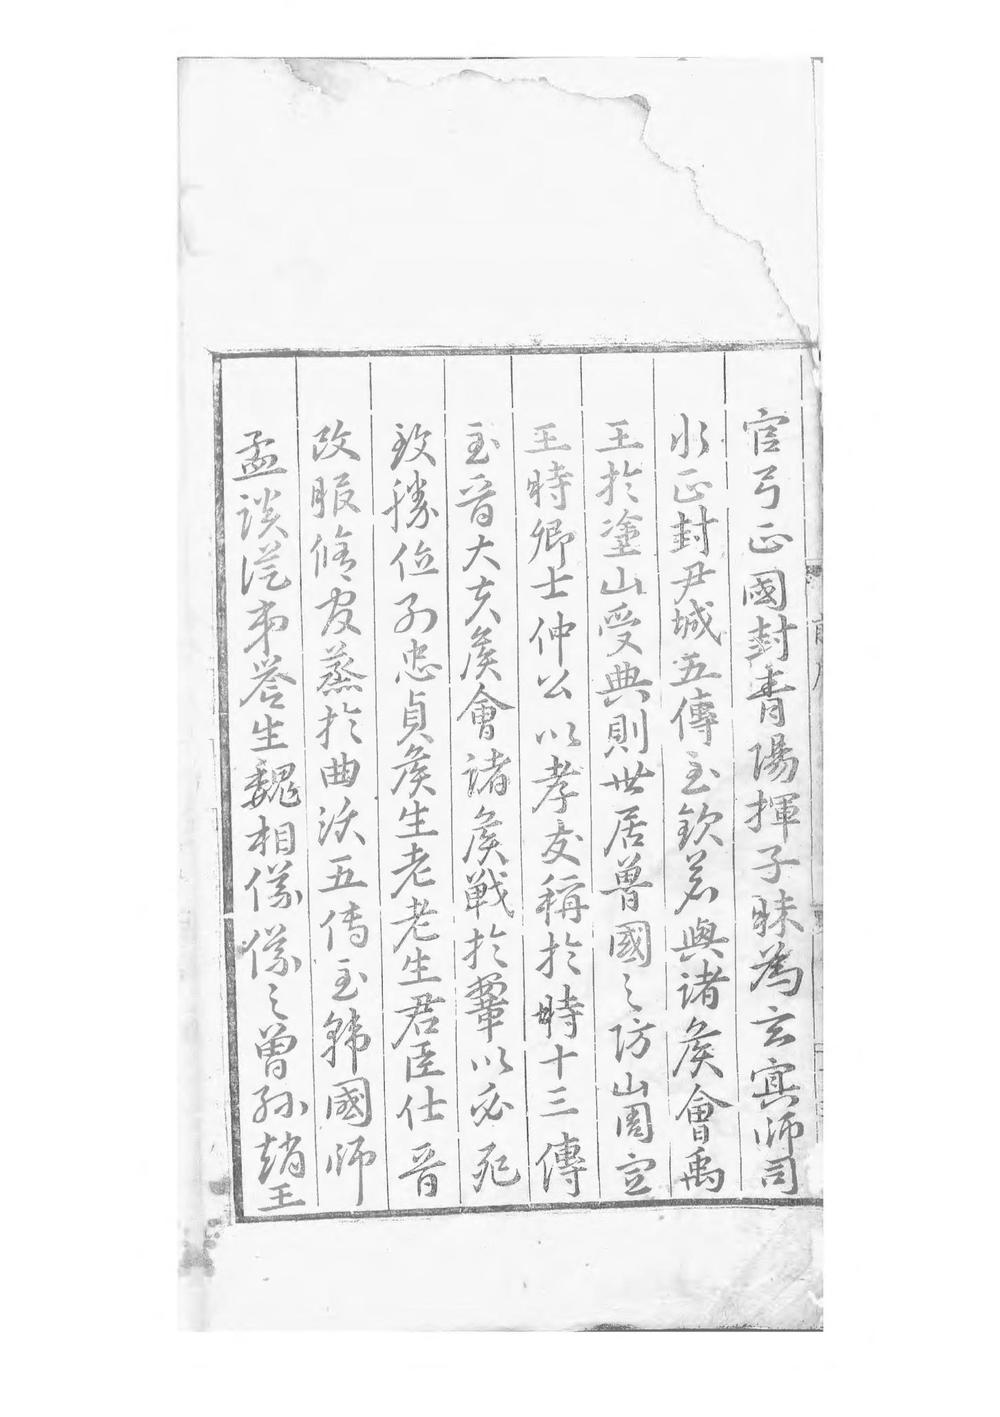 官弓正國封青陽揮子昧為玄冥師司
水正封尹城五傳至欽若與諸侯會禹
王於塗山受典則世居魯國之防山周宣
王時卿士仲公以孝友稱於時十三傳
至晋大夫侯會諸侯戰於鞏以必死
致勝位列忠貞侯生老老生君臣仕晋
改服修官蒸於曲沃五传至韩國師
孟談從弟譽生魏相儀儀之曾孙趙王